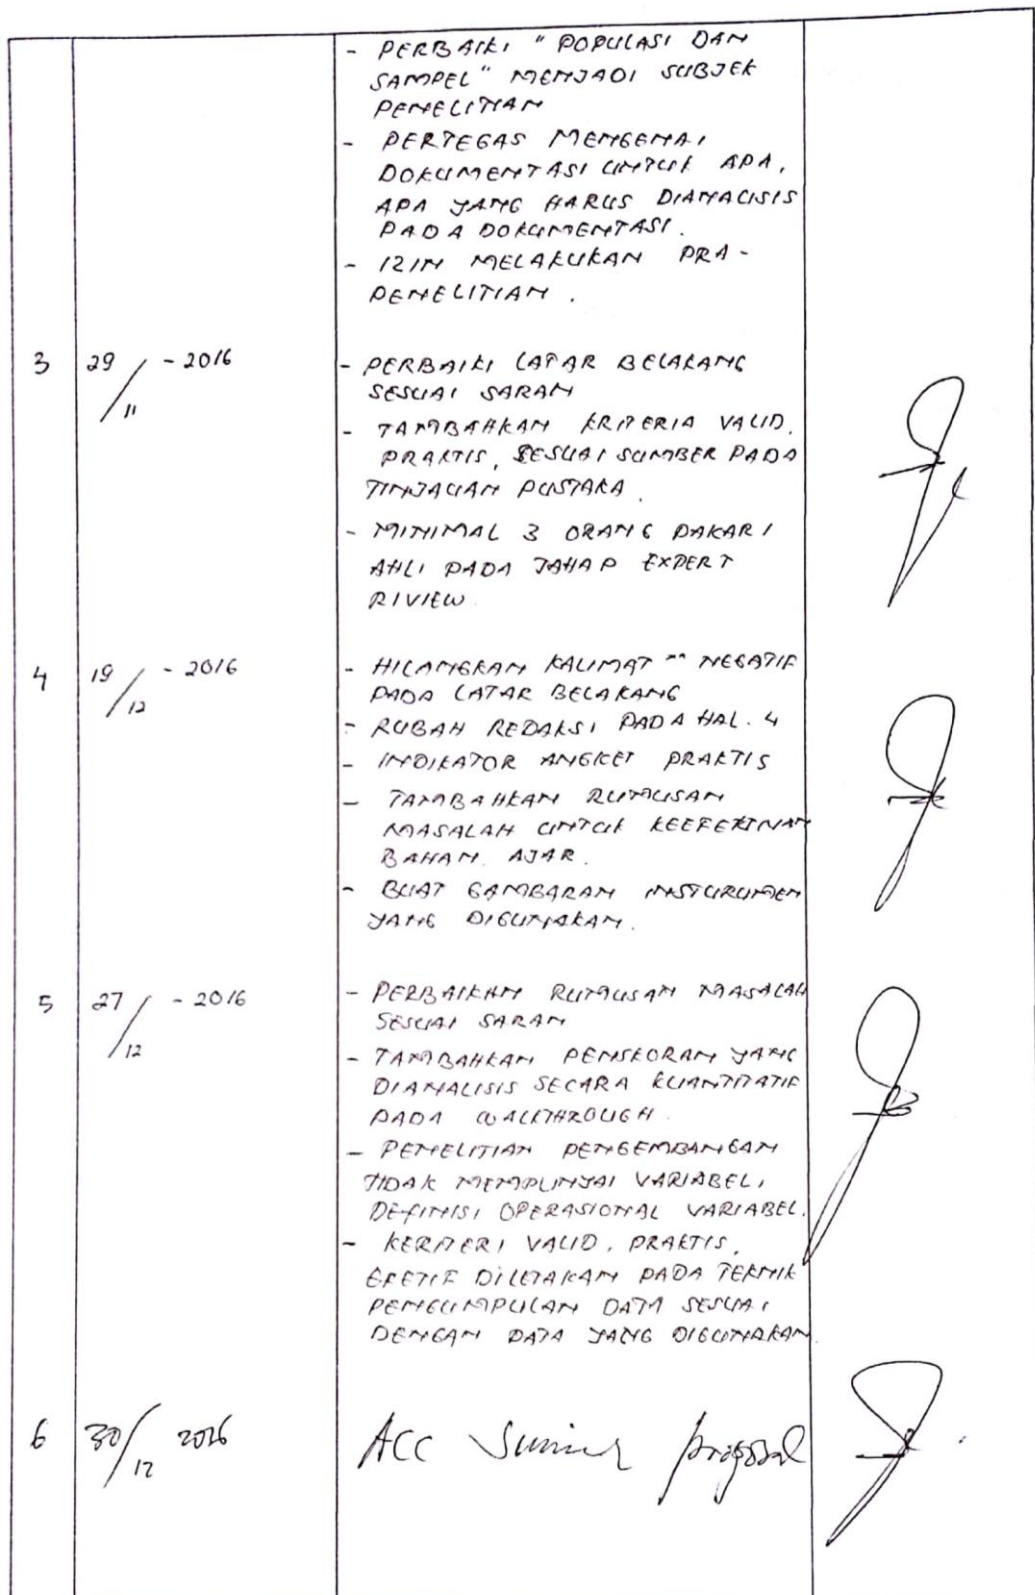 - PERBAIKI "POPULASI DAN
SAMPEL" MENJADI SUBJEK
PENELITIAN
- PERTEGAS MENGENAI
DOKUMENTASI UNTUK APA,
APA YANG HARUS DIANALISIS
PADA DOKUMENTASI.
- IZIN MELAKUKAN PRA-
PENELITIAN.
3 29/11 - 2016 - PERBAIKI LATAR BELAKANG
SESUAI SARAN
- TAMBAHKAN KRITERIA VALID,
PRAKTIS, SESUAI SUMBER PADA
TINJAUAN PUSTAKA.
- MINIMAL 3 ORANG PAKAR/
AHLI PADA TAHAP EXPERT
RIVIEW.
4 19/12 - 2016 - HILANGKAN KALIMAT" NEGATIF
PADA LATAR BELAKANG
- RUBAH REDAKSI PADA HAL. 4
- INDIKATOR ANGKET PRAKTIS
- TAMBAHKAN RUMUSAN
MASALAH UNTUK KEEFEKTIVAN
BAHAN AJAR.
- BUAT GAMBARAN INSTURUMEN
YANG DIGUNAKAN.
5 27/12 - 2016 - PERBAIKAN RUMUSAN MASALAH
SESUAI SARAN
- TAMBAHKAN PENSKORAN YANG
DIANALISIS SECARA KUANTITATIF
PADA WALKTHROUGH.
- PENELITIAN PENGEMBANGAN
TIDAK MEMPUNYAI VARIABEL,
DEFINISI OPERASIONAL VARIABEL.
- KERITERI VALID, PRAKTIS,
EFETIF DILETAKAN PADA TEKNIK
PENGUMPULAN DATA SESUAI
DENGAN DATA YANG DIGUNAKAN.
6 30/12 2016 ACC proposal